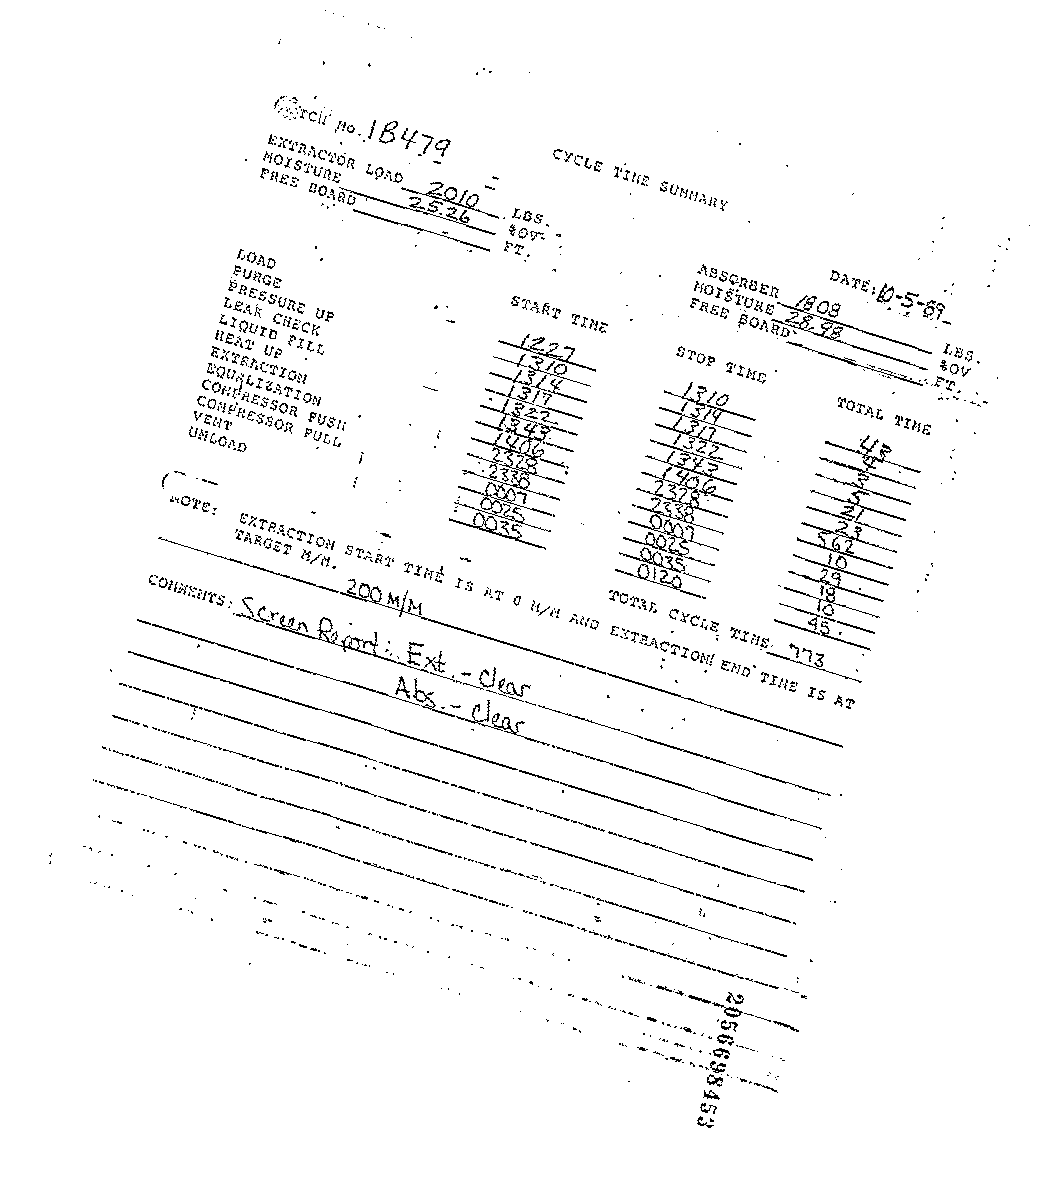 CYCLE TIME SUMMARY
No. 1B479
EXTRACTOR LOAD 2010 LBS.
MOISTURE 25.26 %OV
FREE BOARD FT.
DATE: 10-5-89
ABSORBER 1808 LBS.
MOISTURE 28.98 %OV
FREE BOARD FT.
START TIME STOP TIME TOTAL TIME
LOAD 1227 1310 43
PURGE 1310 1314 4
PRESSURE UP 1314 1317 3
LEAK CHECK 1317 1322 5
LIQUID FILL 1322 1343 21
HEAT UP 1343 1406 23
EXTRACTION 1406 2328 562
EQUALIZATION 2328 2338 10
COMPRESSOR PUSH 2338 0007 29
COMPRESSOR PULL 0007 0025 18
VENT 0025 0035 10
UNLOAD 0035 0120 45
TOTAL CYCLE TIME 773
NOTE: EXTRACTION START TIME IS AT 0 M/M AND EXTRACTION END TIME IS AT
TARGET M/M. 200 M/M
COMMENTS: Screen Report: Ext. - clear
Abs. - clear
2056698453